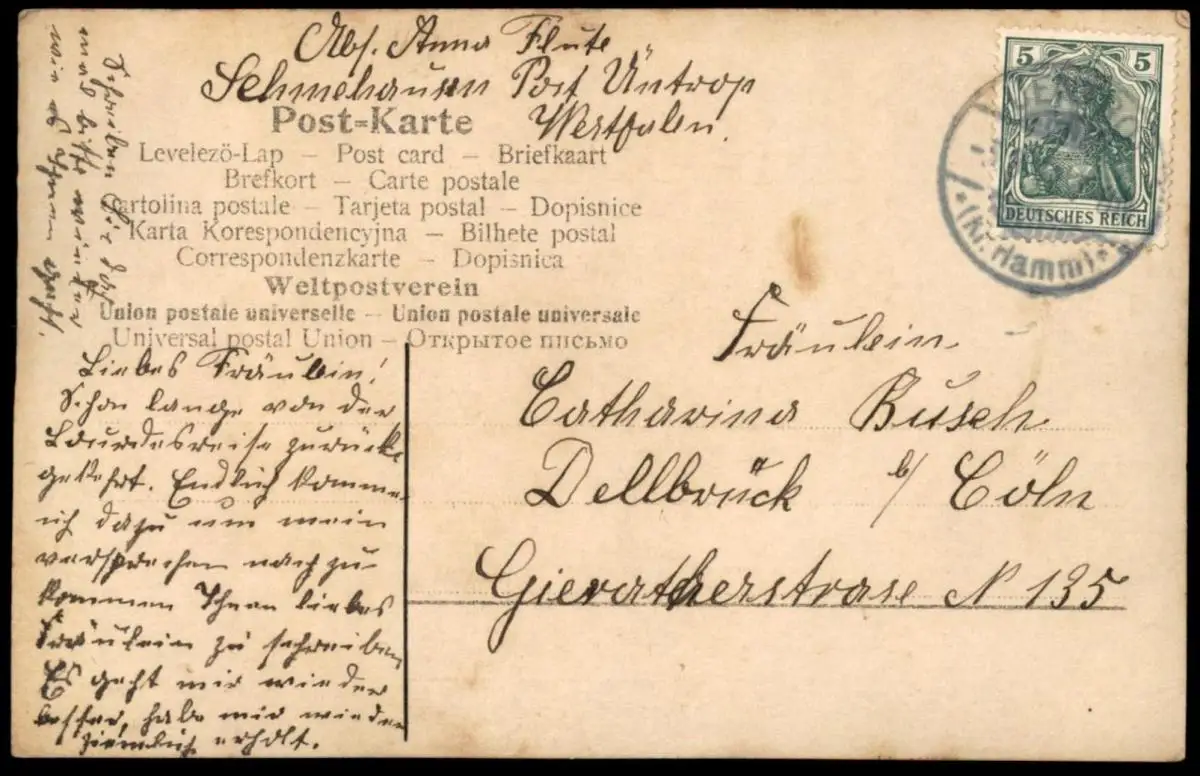 Abs. Anna Flute
Schmehausen Post Üntrop
Westfalen.
Post-Karte
Levelező-Lap – Post card – Briefkaart
Brefkort – Carte postale
Cartolina postale – Tarjeta postal – Dopisnice
Karta Korespondencyjna – Bilhete postal
Correspondenzkarte – Dopisnica
Weltpostverein
Union postale universelle – Union postale universale
Universal postal Union – Открытое письмо
5 5
DEUTSCHES REICH
(Kr. Hamm)
Fräulein
Catharina Busch
Dellbrück b/ Cöln
Gieratherstrase N 135
Liebes Fräulein!
Schon lange von der
Lourdesreise zurück
gekehrt. Endlich komme
ich dazu um mein
versprechen nach zu
kommen Ihnen liebes
Fräulein zu schreiben
Es geht mir wieder
besser, habe mir wieder
ziemlich erholt.
Schreiben Sie
mal bitte wieder
wie es Ihnen geht.